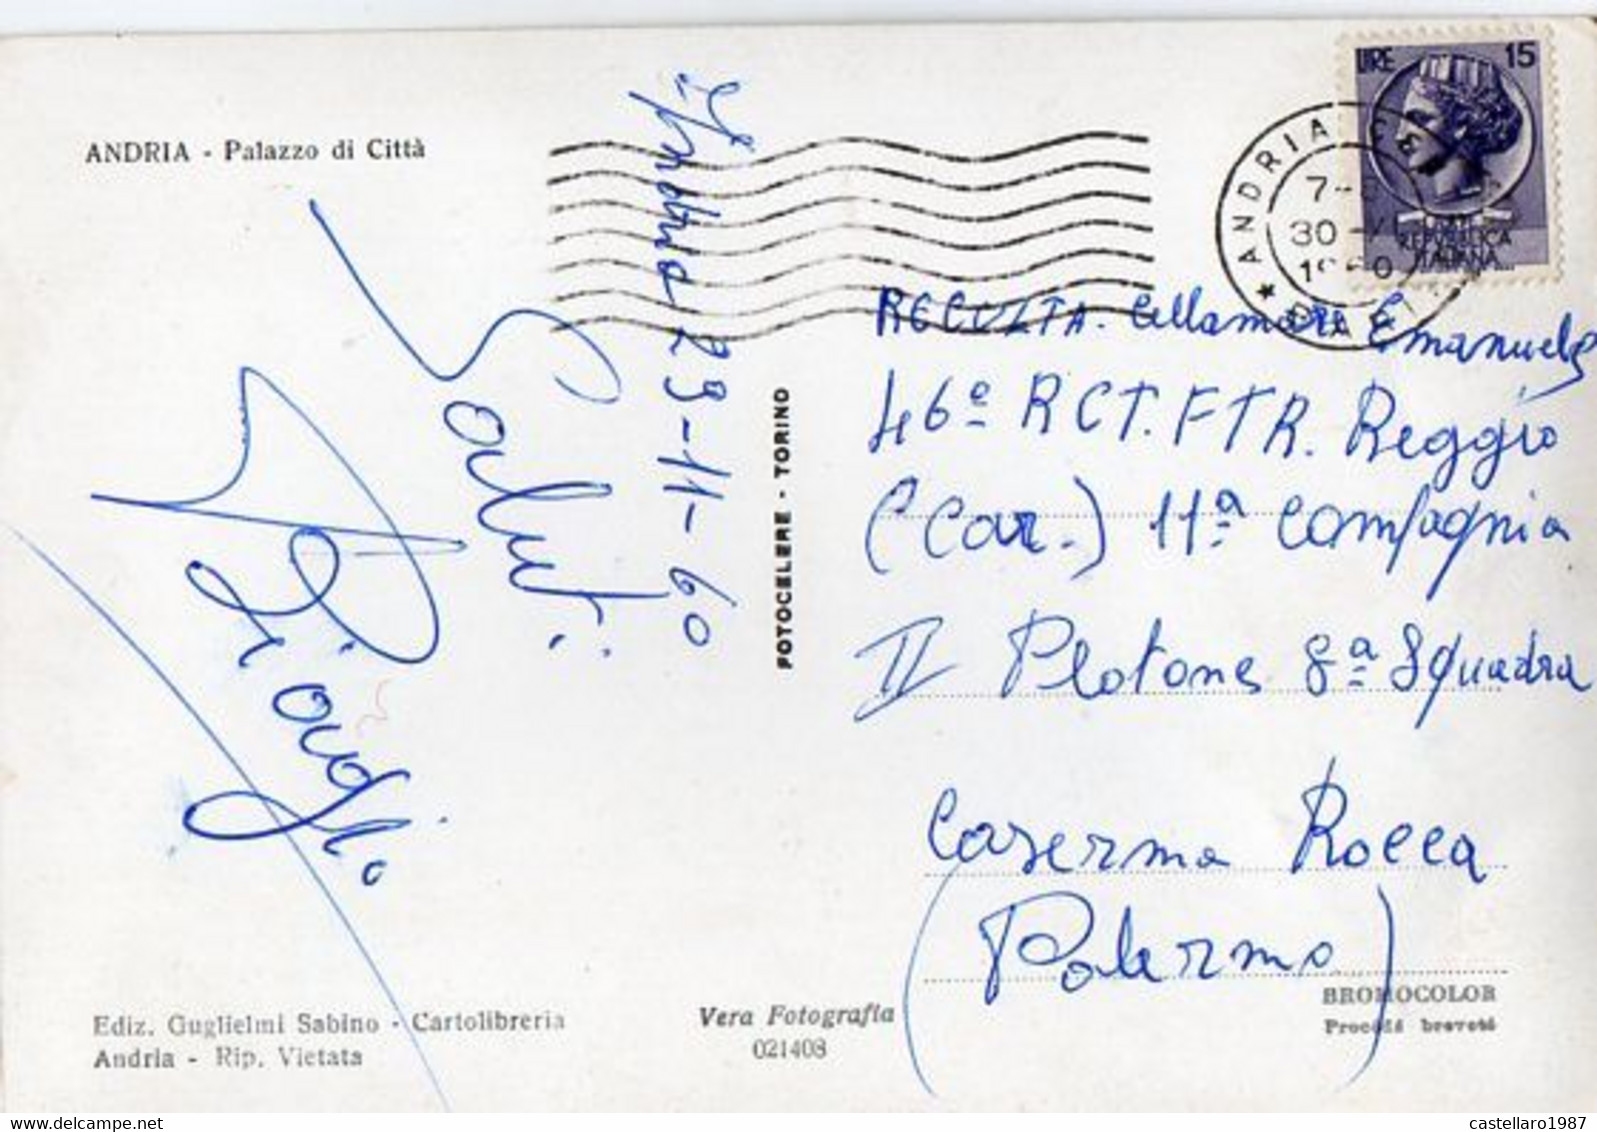 ANDRIA - Palazzo di Città
Andria 29-11-60
Saluti
Ediz. Guglielmi Sabino - Cartolibreria
Andria - Rip. Vietata
FOTOCELERE - TORINO
Vera Fotografia
021408
LIRE 15
REPVBBLICA
ITALIANA
ANDRIA
7-
30
1960
RECULTA. Cellamare Emanuele
46º RCT. FTR. Reggio
(Car.) 11ª Compagnia
II Plotone 8ª Squadra
Caserma Rocca
(Palermo)
BROMOCOLOR
Procédé breveté
castellaro1987